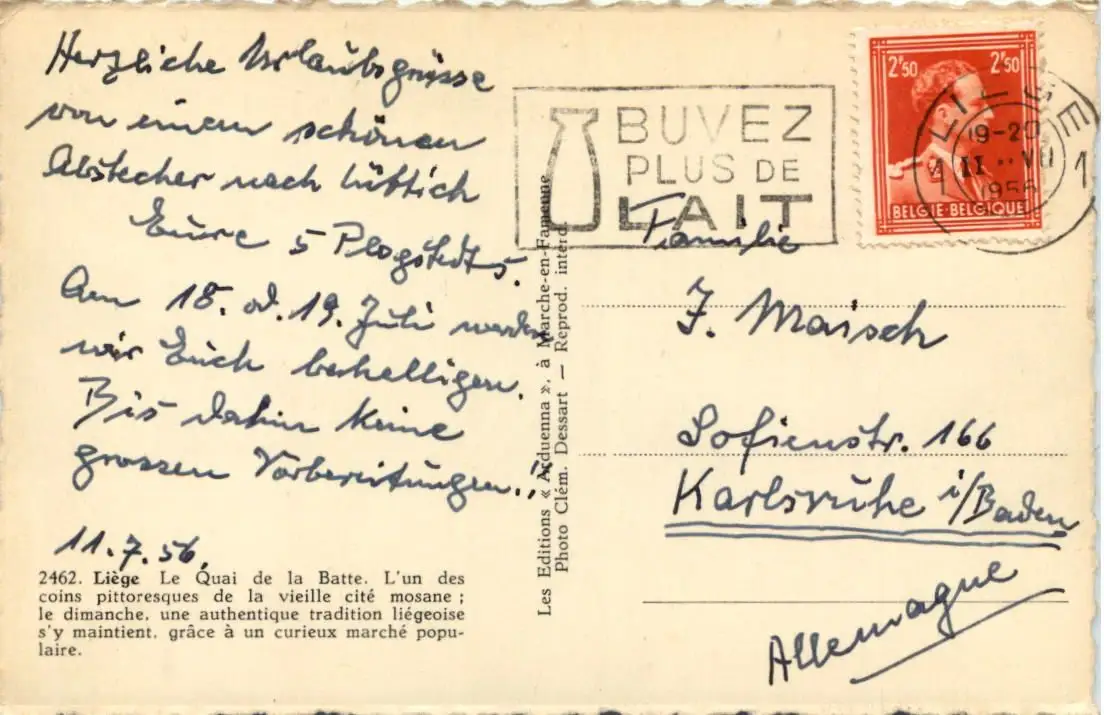 Herzliche Urlaubsgrüsse
von einem schönen
Abstecher nach Lüttich
Eure 5 Plogstedts.
Am 18. od. 19. Juli werden
wir Euch behelligen.
Bis dahin keine
grossen Vorbereitungen!!
11.7.56.
2462. Liège Le Quai de la Batte. L'un des
coins pittoresques de la vieille cité mosane ;
le dimanche, une authentique tradition liégeoise
s'y maintient, grâce à un curieux marché popu-
laire.
Les Editions « Arduenna », à Marche-en-Famenne
Photo Clém. Dessart — Reprod. interd.
BUVEZ
PLUS DE
LAIT
2'50 2'50
BELGIE-BELGIQUE
LIEGE
19-20
11 VII
1956
1 1
Familie
J. Maisch
Sofienstr. 166
Karlsruhe i/Baden
Allemagne